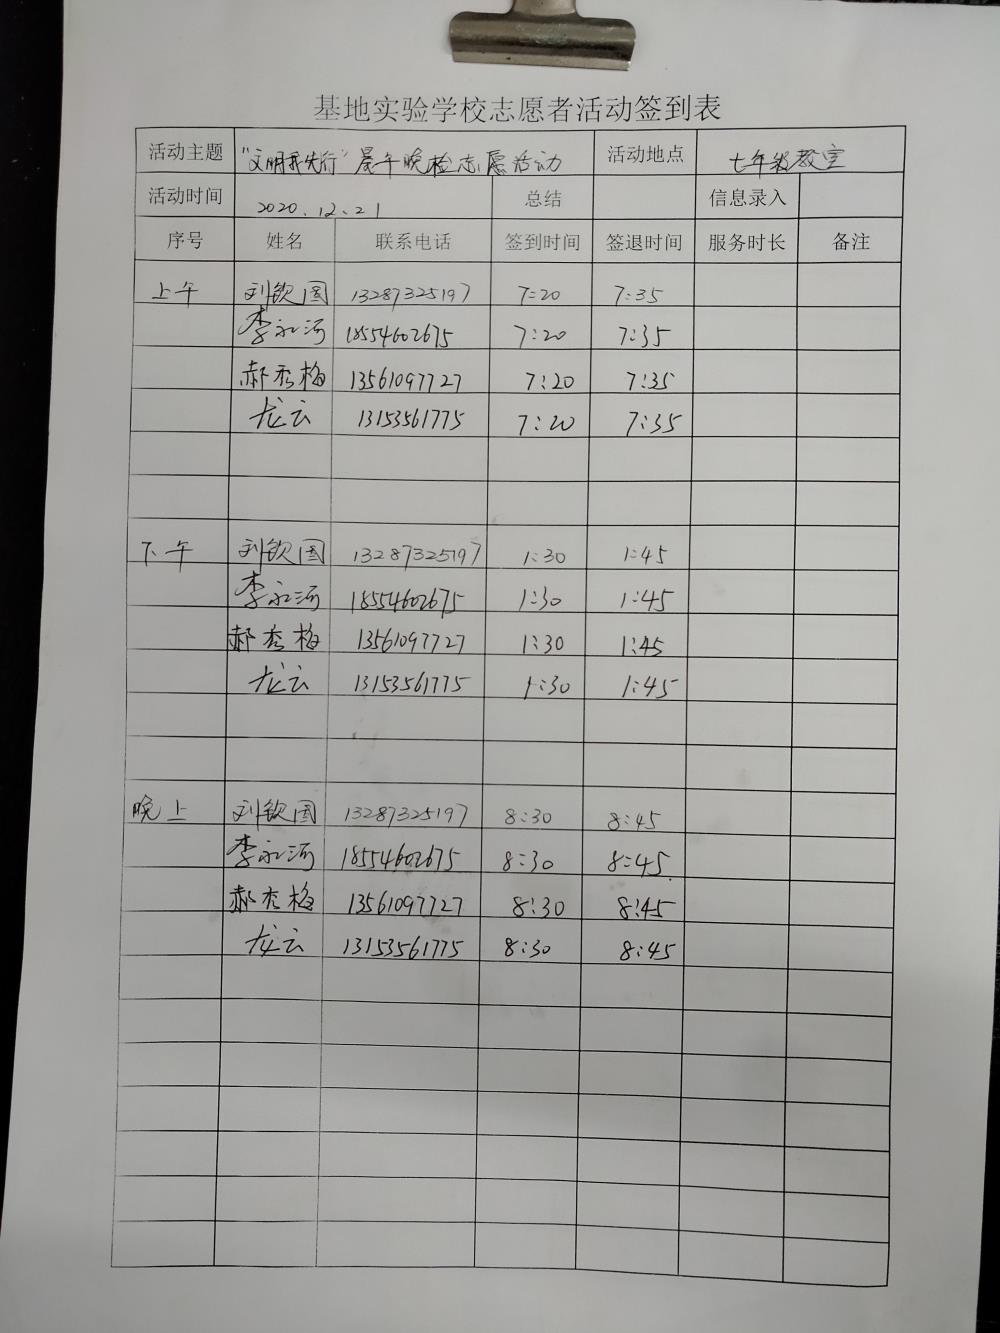 基地实验学校志愿者活动签到表
活动主题 "文明我先行"晨午晚检志愿活动 活动地点 七年级教室
活动时间 2020.12.21 总结 信息录入
序号 姓名 联系电话 签到时间 签退时间 服务时长 备注
上午 刘钦国 13287325197 7:20 7:35
李永河 18554602675 7:20 7:35
郝秀梅 13561097727 7:20 7:35
龙云 13153561775 7:20 7:35
下午 刘钦国 13287325197 1:30 1:45
李永河 18554602675 1:30 1:45
郝秀梅 13561097727 1:30 1:45
龙云 13153561775 1:30 1:45
晚上 刘钦国 13287325197 8:30 8:45
李永河 18554602675 8:30 8:45
郝秀梅 13561097727 8:30 8:45
龙云 13153561775 8:30 8:45